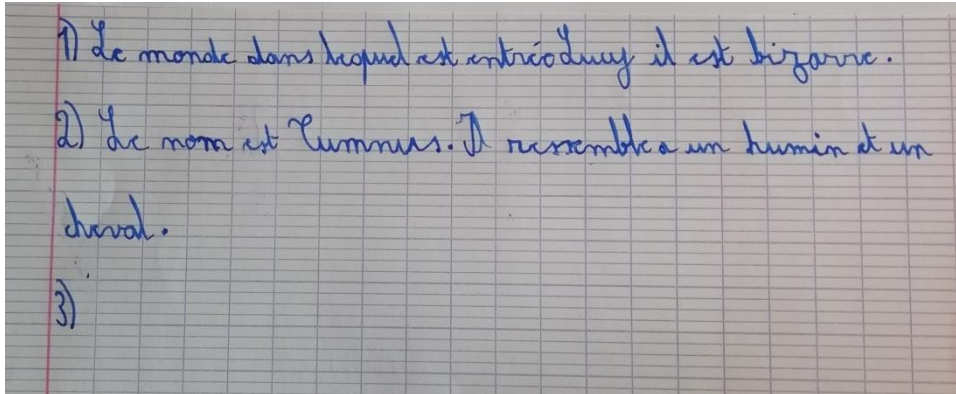 1) Le monde dans lequel est entrée Lucy il est bizarre.
2) Le nom est Tumnus. Il ressemble a un humin et un
cheval.
3)